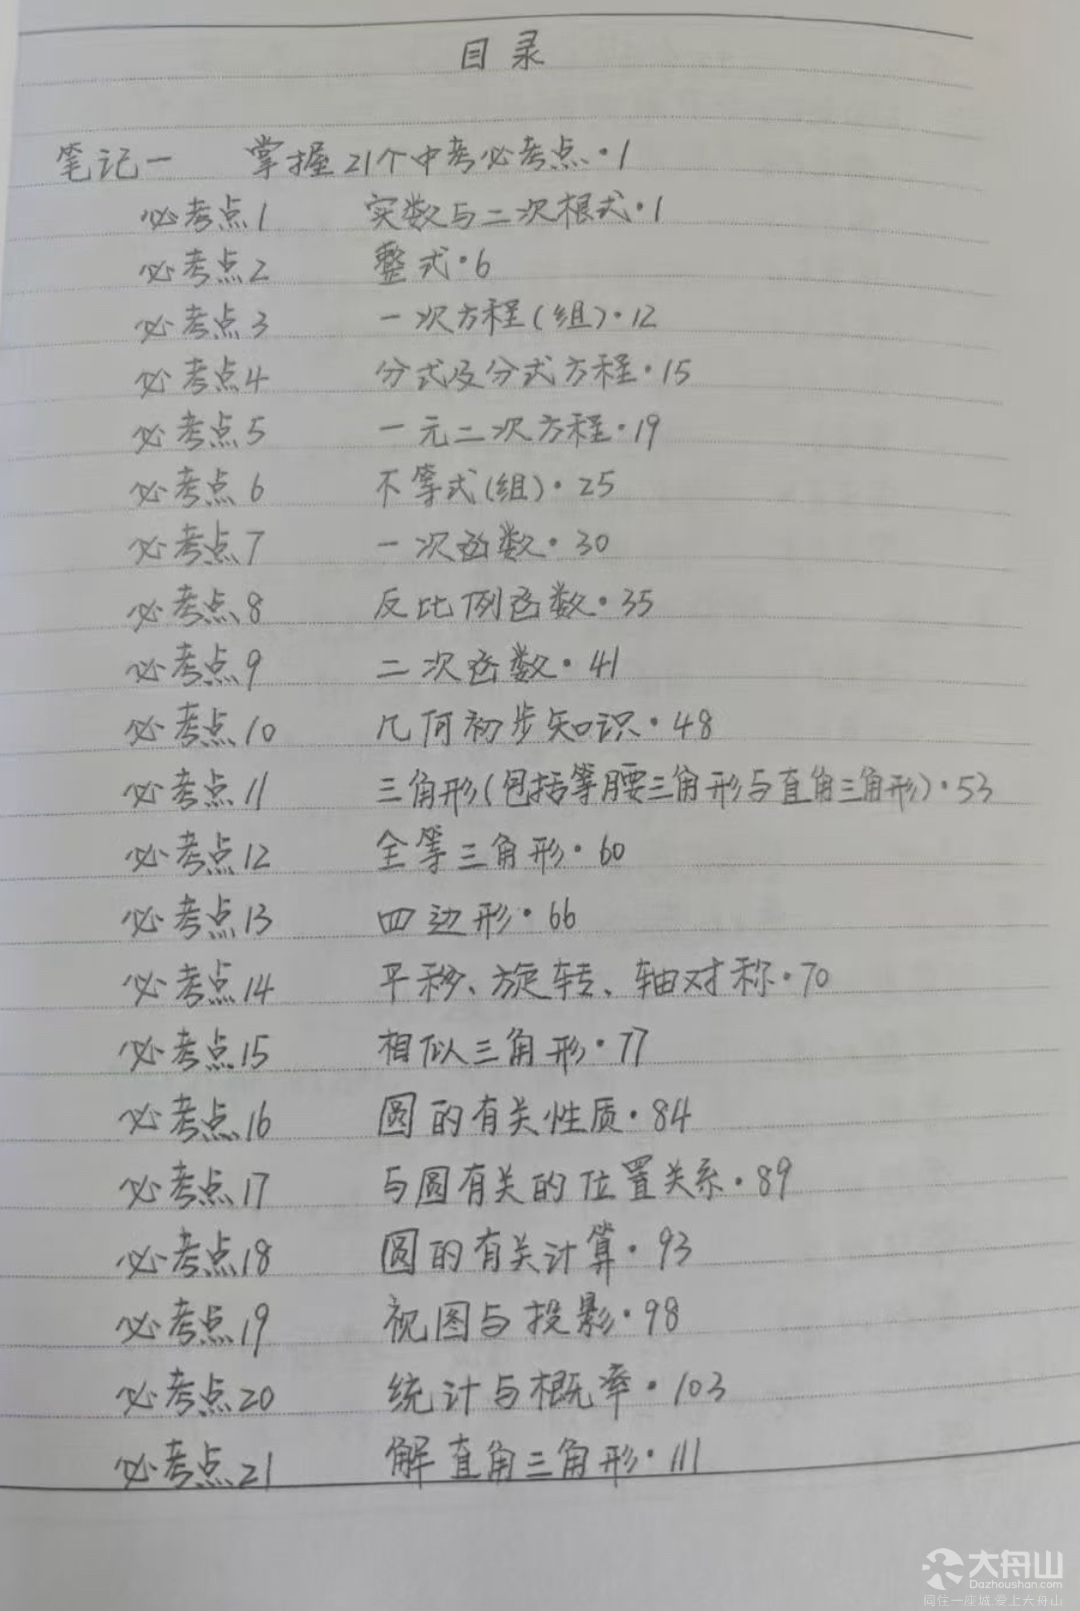 目录
笔记一 掌握21个中考必考点·1
必考点1 实数与二次根式·1
必考点2 整式·6
必考点3 一次方程(组)·12
必考点4 分式及分式方程·15
必考点5 一元二次方程·19
必考点6 不等式(组)·25
必考点7 一次函数·30
必考点8 反比例函数·35
必考点9 二次函数·41
必考点10 几何初步知识·48
必考点11 三角形(包括等腰三角形与直角三角形)·53
必考点12 全等三角形·60
必考点13 四边形·66
必考点14 平移、旋转、轴对称·70
必考点15 相似三角形·77
必考点16 圆的有关性质·84
必考点17 与圆有关的位置关系·89
必考点18 圆的有关计算·93
必考点19 视图与投影·98
必考点20 统计与概率·103
必考点21 解直角三角形·111
大舟山
Dazhoushan.com
同住一座城,爱上大舟山